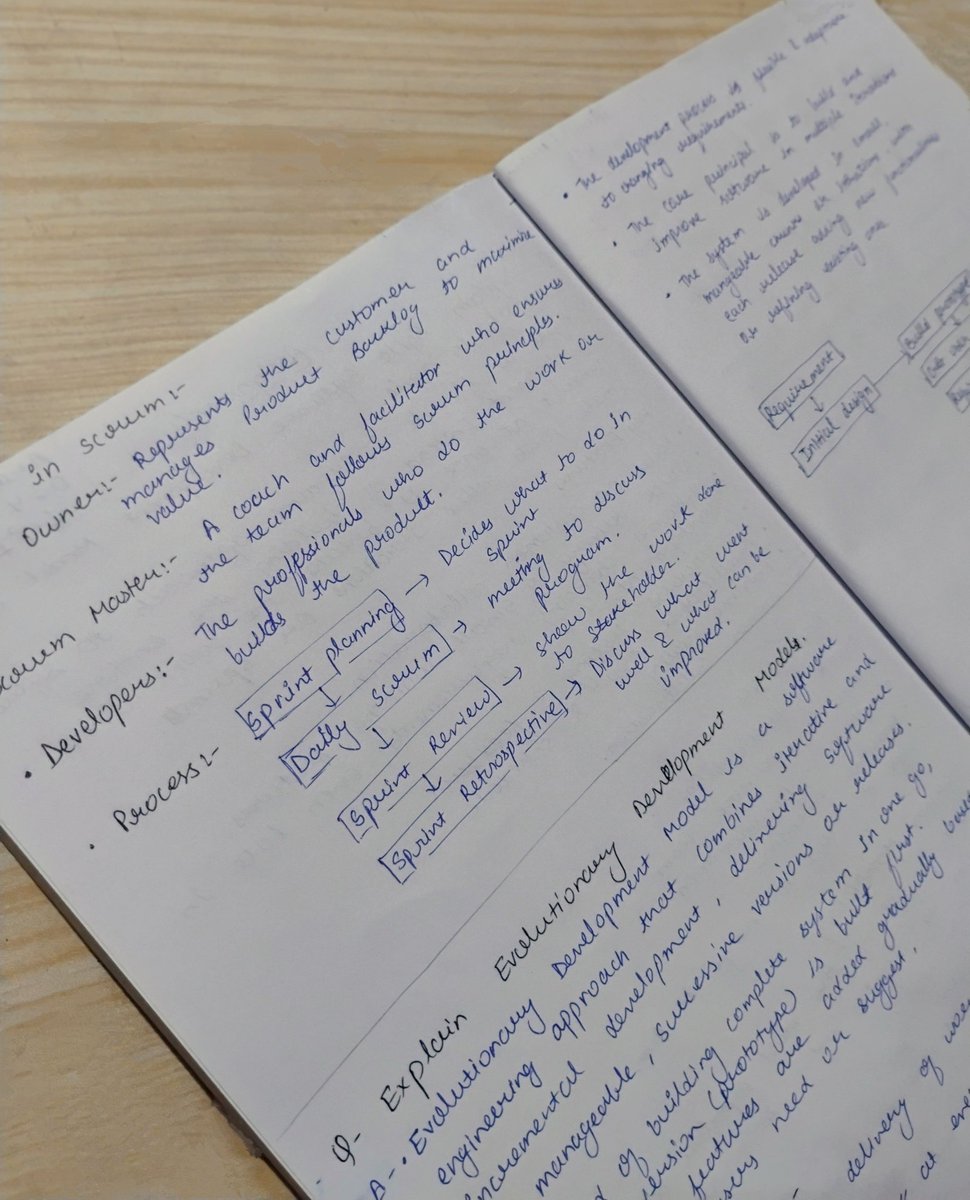 in Scrum:-
Owner:- Represents the customer and
manages Product Backlog to maximize
value.
Scrum Master:- A coach and facilitator who ensures
the team follows scrum principles.
• Developers:- The proffesionals who do the work or
builds the product.
• Process:-
Sprint planning → Decides what to do in
sprint
↓
Daily Scrum → meeting to discuss
program.
↓
Sprint Review → show the work done
to stakeholder.
↓
Sprint Retrospective → Discuss what went
well & what can be
improved.
Q- Explain Evolutionary Development Models.
A- • Evolutionary Development Model is a software
engineering approach that combines iterative and
incremental development, delivering software
manageable, successive versions or releases.
of building complete system in one go,
version (prototype) is build first.
features are added gradually
users need or suggest.
delivery of
at
• The development process is flexible &
to changing requirements.
• The core principal is to build and
improve software in multiple iterations
• The system is developed in small,
mangeable chunks or iterations, with
each release adding new functionalities
or refining existing one
Requirement
↓
Initial design
Build prototype